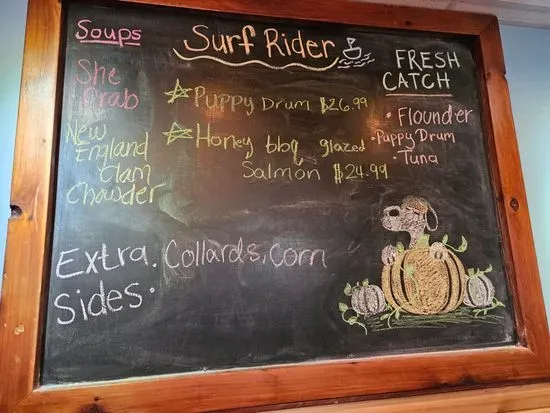 Soups
She
Crab
New
England
Clam
Chowder
Surf Rider
Puppy Drum $26.99
Honey bbq glazed
Salmon $24.99
FRESH
CATCH
• Flounder
• Puppy Drum
• Tuna
Extra. Collards, Corn
Sides.